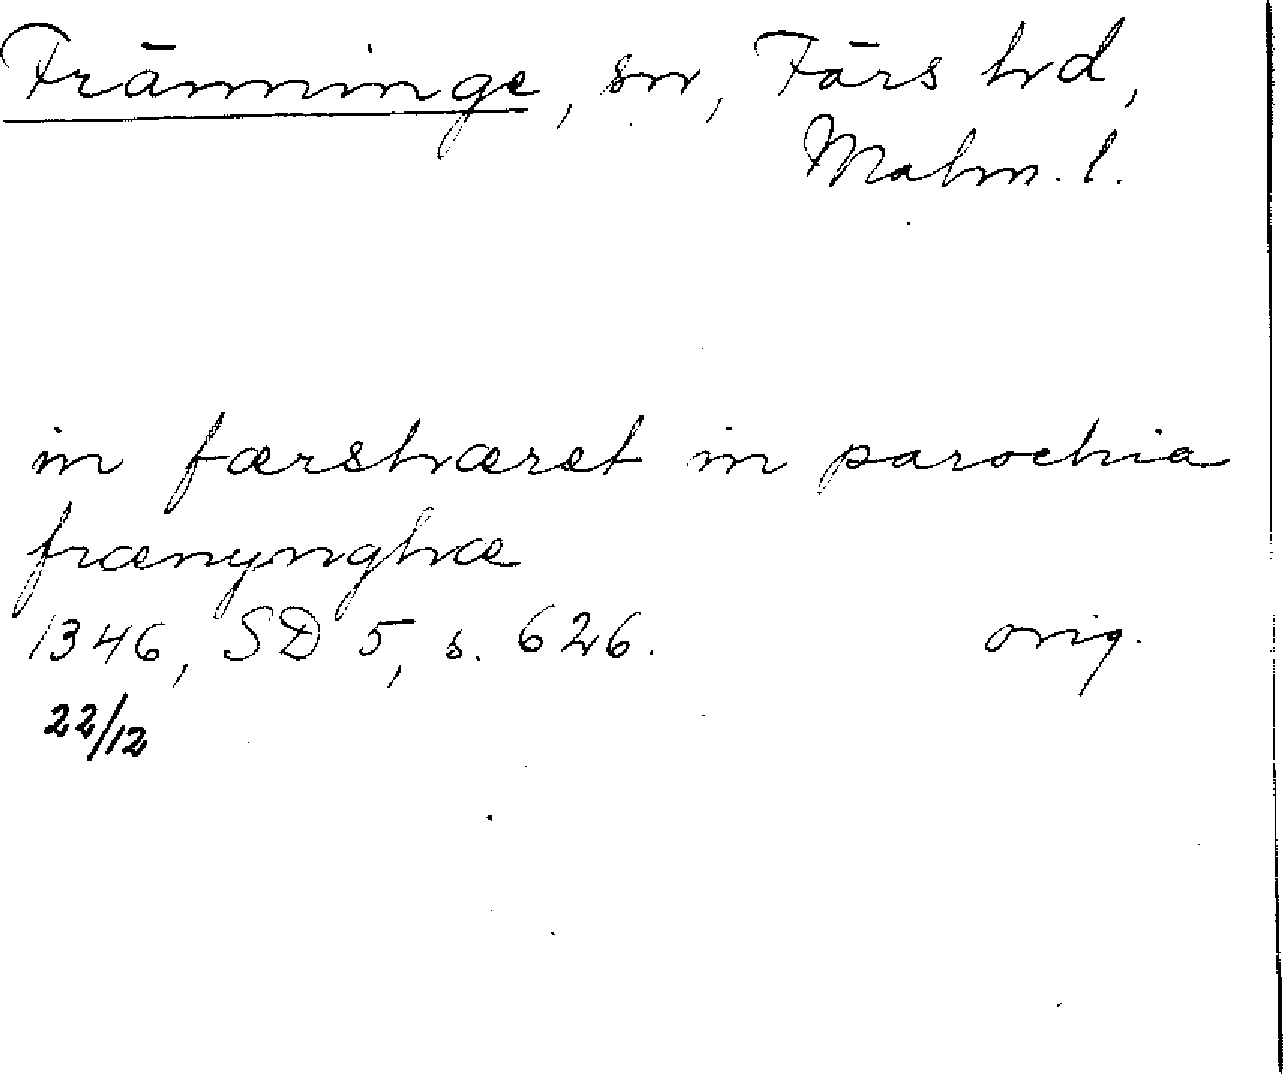 Fränninge, sn, Färs hd,
Malm. l.
in færshæret in parochia
frænynghæ
1346, SD 5, s. 626. orig.
22/12